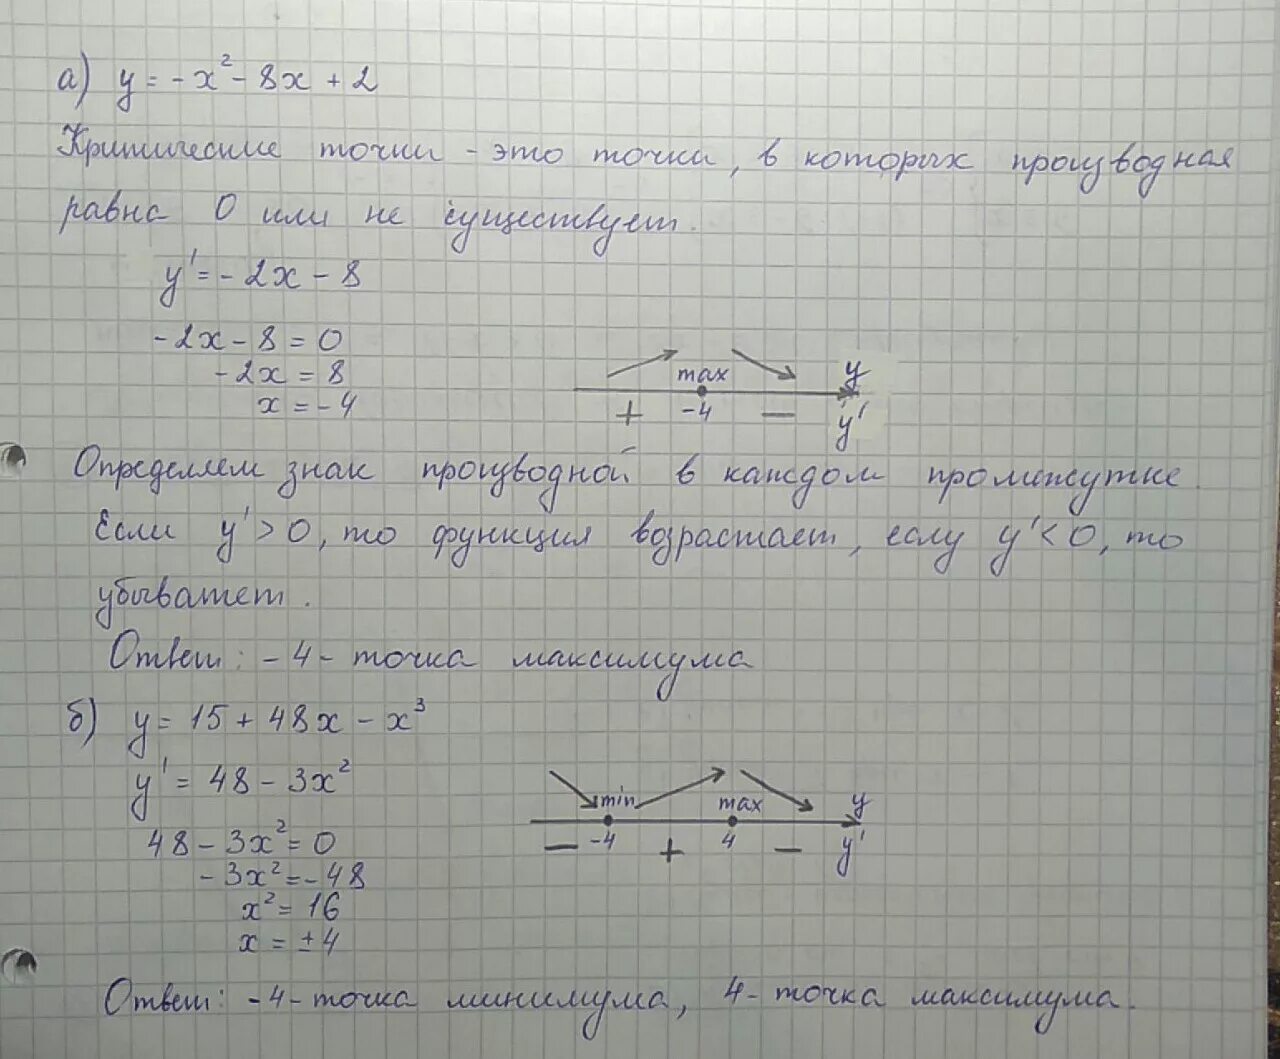 а) y = -x² - 8x + 2
Критические точки - это точки, в которых производная
равна 0 или не существует.
y' = -2x - 8
-2x - 8 = 0
-2x = 8
x = -4
max y
+ -4 - y'
Определяем знак производной в каждом промежутке.
Если y' > 0, то функция возрастает, еслу y' < 0, то
убыватет.
Ответ: -4 - точка максимума
б) y = 15 + 48x - x³
y' = 48 - 3x²
48 - 3x² = 0
-3x² = -48
x² = 16
x = ±4
min max y
- -4 + 4 - y'
Ответ: -4 - точка минимума, 4 - точка максимума.